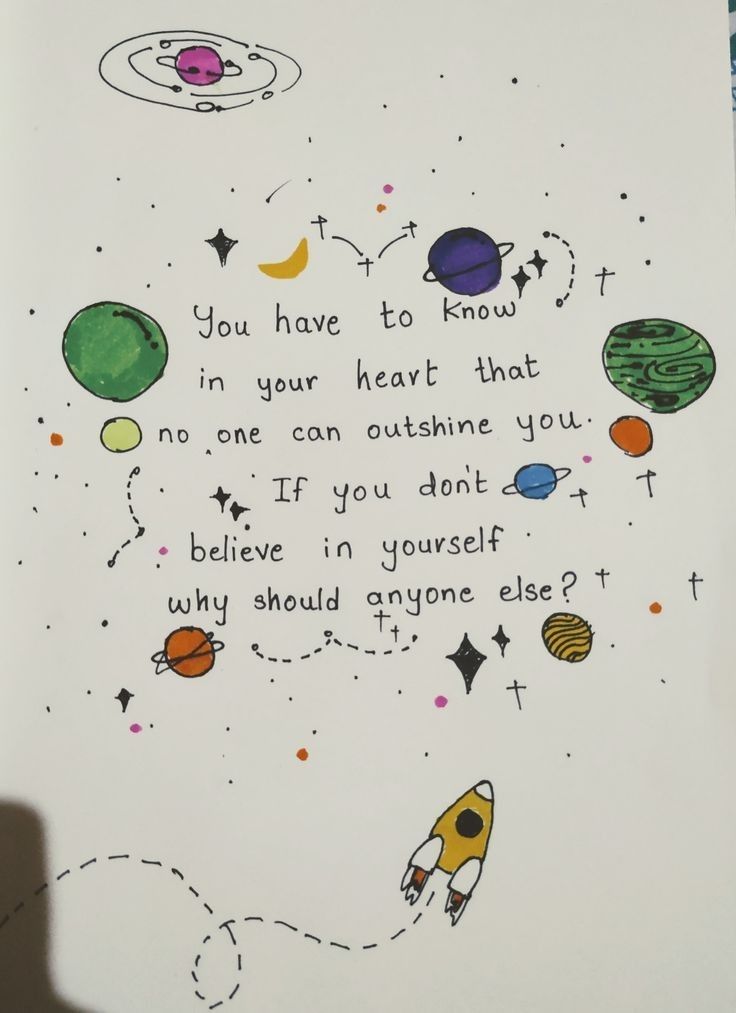 You have to know
in your heart that
no one can outshine you.
If you don't
believe in yourself
why should anyone else?